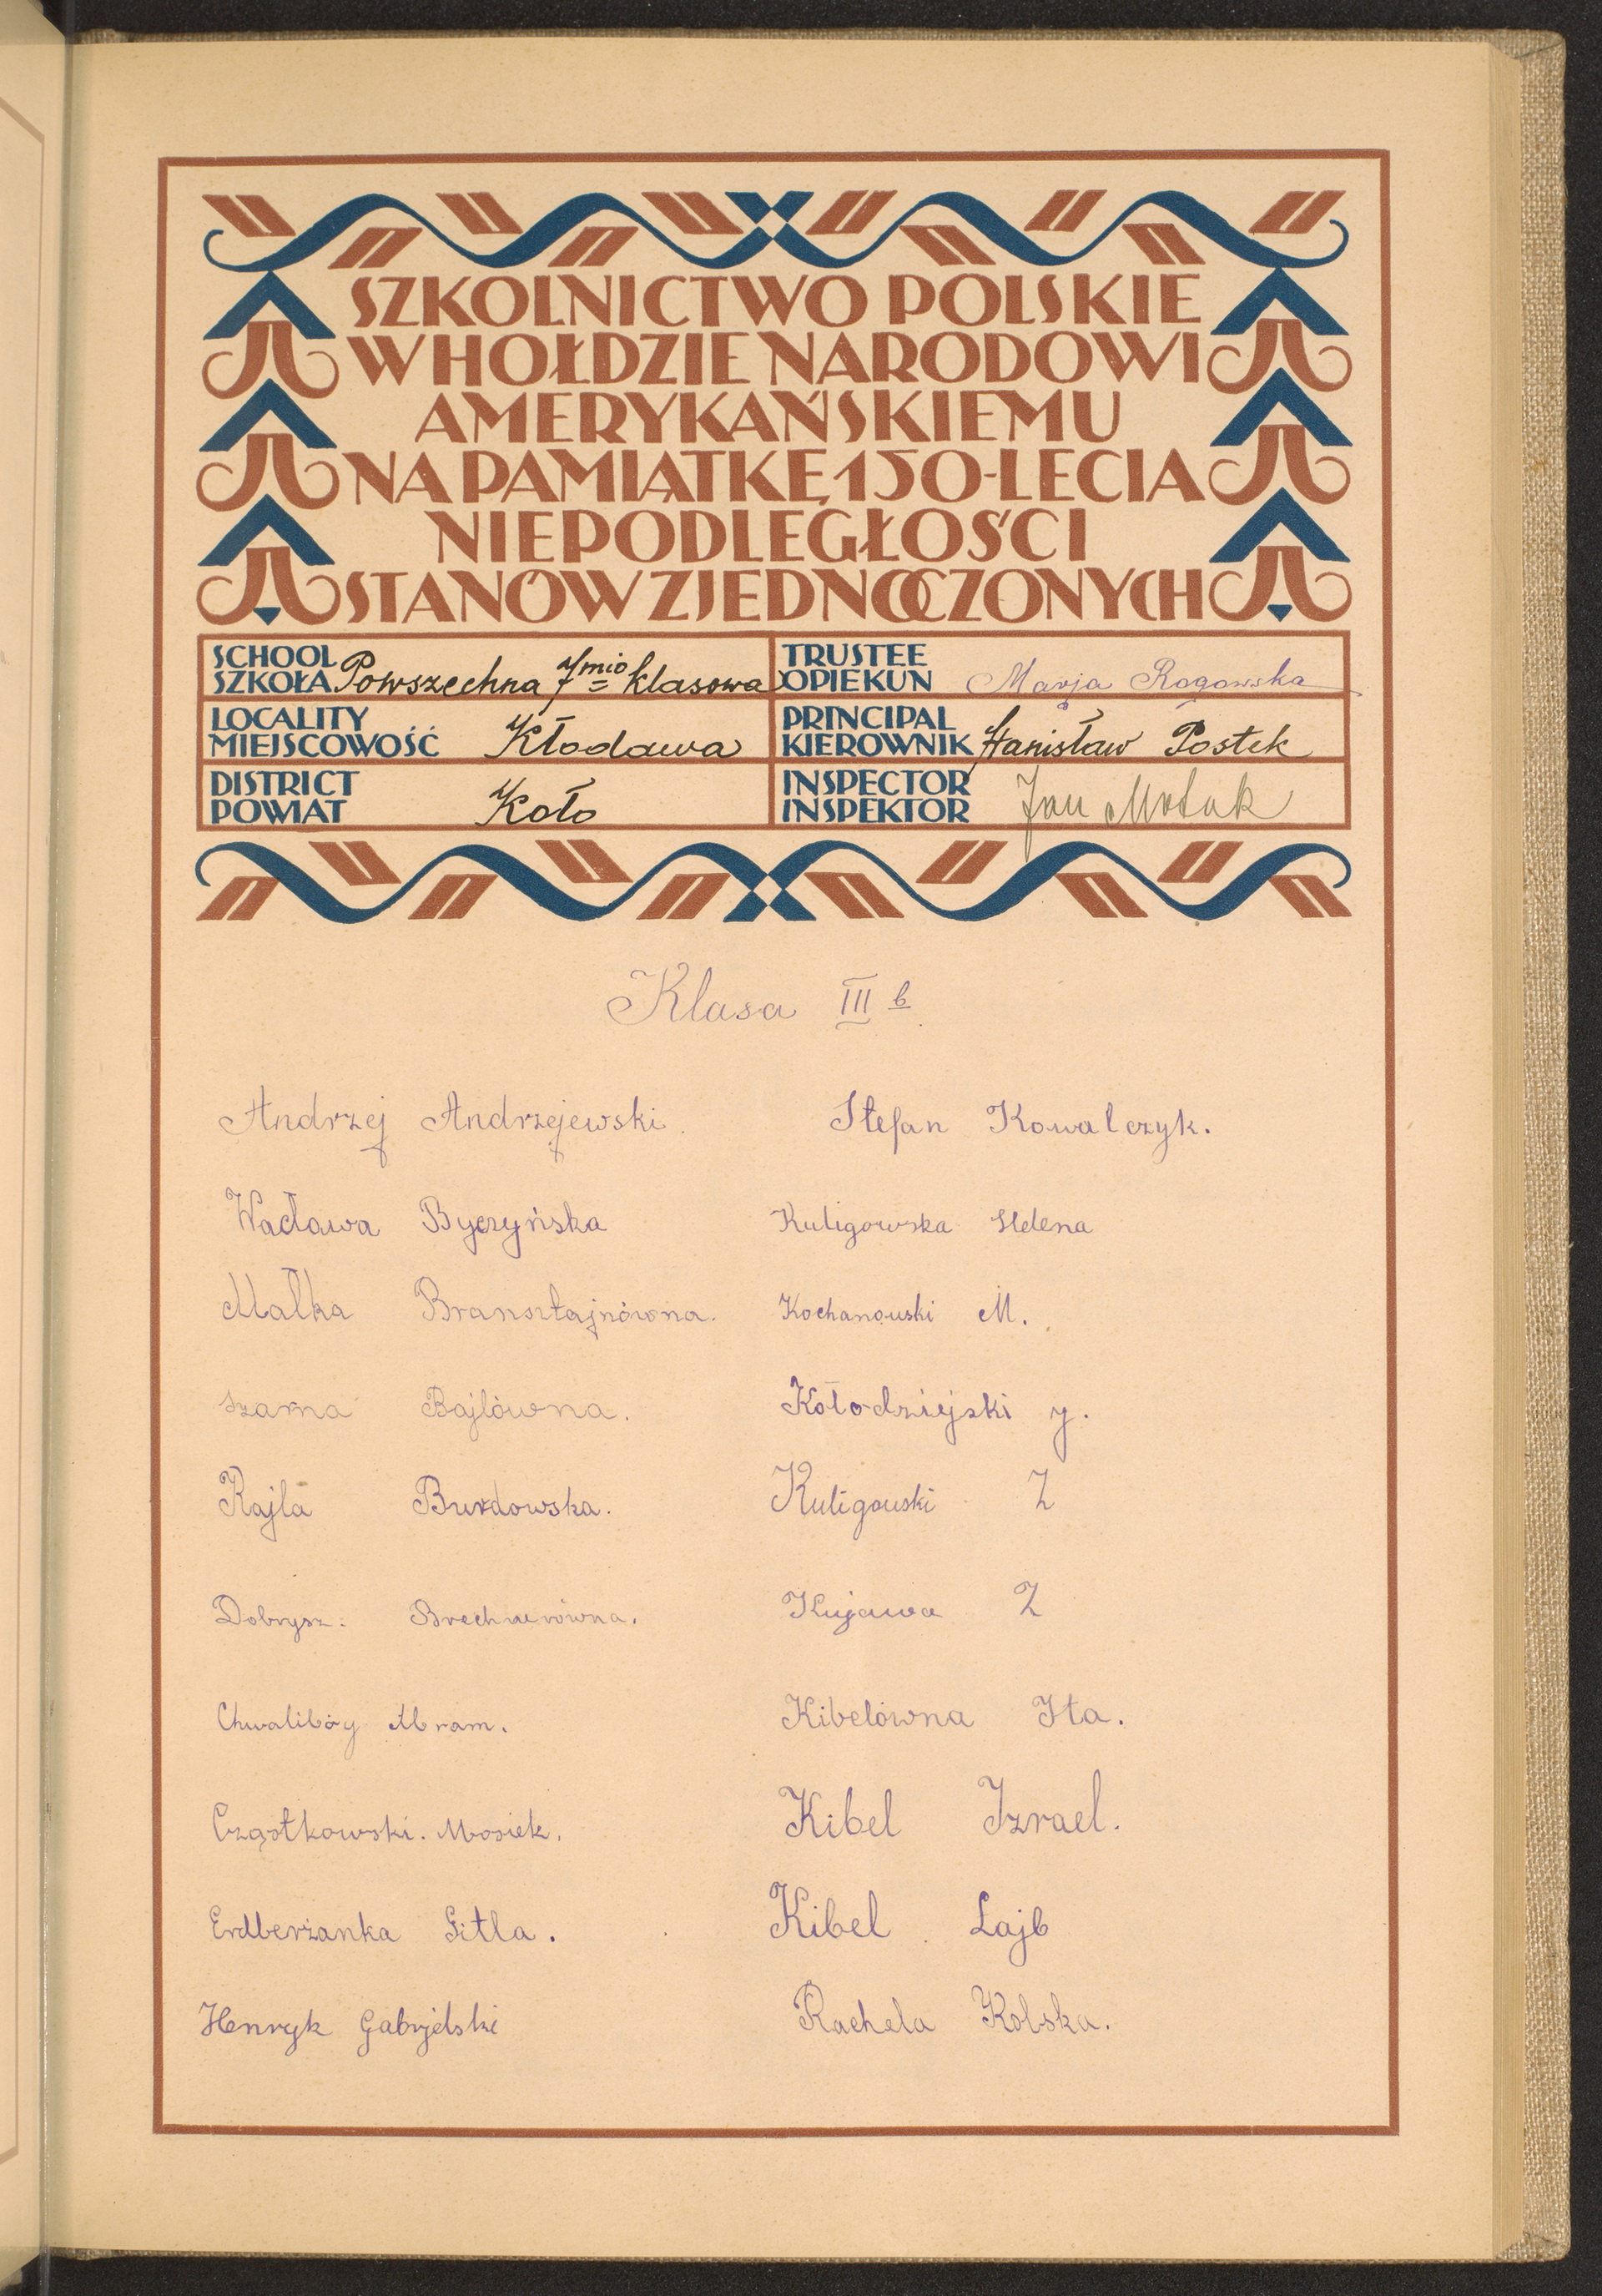 SZKOLNICTWO POLSKIE
W HOŁDZIE NARODOWI
AMERYKAŃSKIEMU
NA PAMIĄTKĘ 150-LECIA
NIEPODLEGŁOŚCI
STANÓW ZJEDNOCZONYCH
SCHOOL
SZKOŁA Powszechna 7mio klasowa
TRUSTEE
OPIEKUN Marja Rogowska
LOCALITY
MIEJSCOWOŚĆ Kłodawa
PRINCIPAL
KIEROWNIK Stanisław Postek
DISTRICT
POWIAT Koło
INSPECTOR
INSPEKTOR Jan
Klasa III b
Andrzej Andrzejewski.
Wacława Byczyńska
Małka Bransztajnówna.
Szarna Bajlówna.
Rajla Burdowska.
Dobrysz. Brechnerówna.
Chwalibóg Abram.
Cząstkowski. Mosiek.
Erdberżanka Gitla.
Henryk Gabryjelski
Stefan Kowalczyk.
Kuligowska Helena
Kochanowski M.
Kołodziejski J.
Kuligowski Z
Kujawa Z
Kibelówna Ita.
Kibel Izrael.
Kibel Lajb
Rachela Kolska.